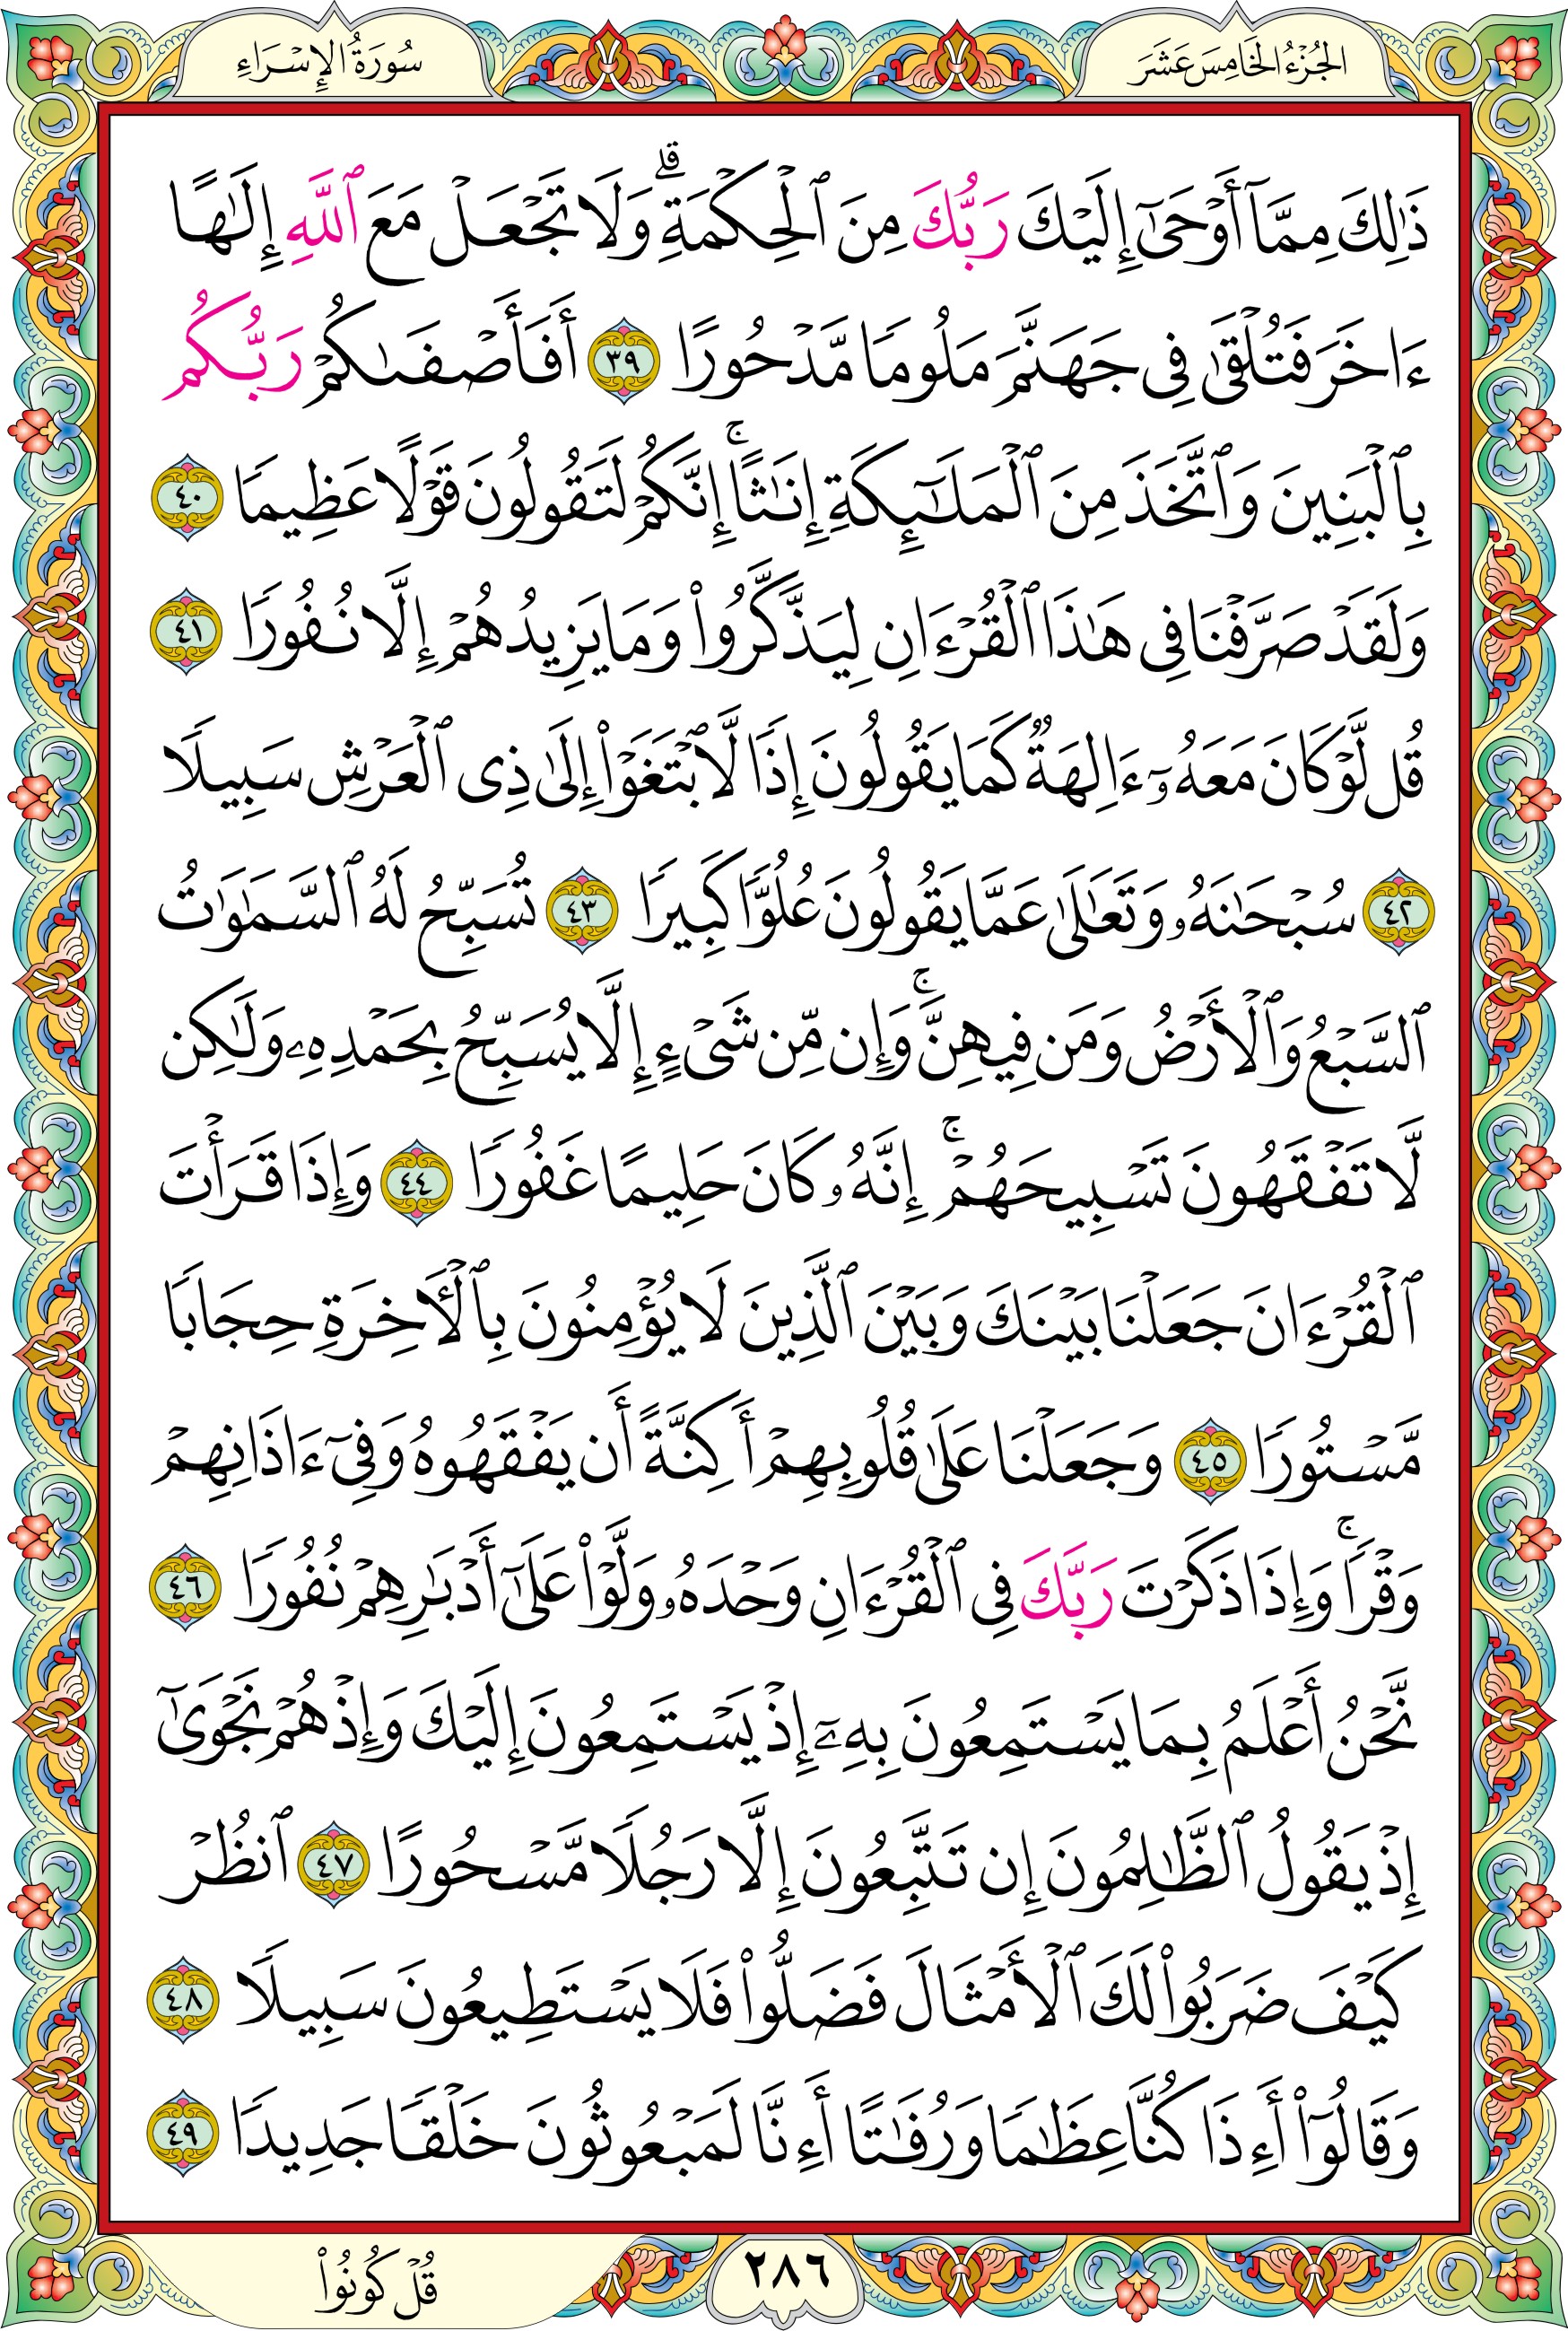 الجُزْءُ الخَامِسَ عَشَرَ
سُورَةُ الإِسْرَاءِ
ذَٰلِكَ مِمَّآ أَوْحَىٰٓ إِلَيْكَ رَبُّكَ مِنَ ٱلْحِكْمَةِ ۗ وَلَا تَجْعَلْ مَعَ ٱللَّهِ إِلَٰهًا
ءَاخَرَ فَتُلْقَىٰ فِى جَهَنَّمَ مَلُومًا مَّدْحُورًا ٣٩ أَفَأَصْفَىٰكُمْ رَبُّكُم
بِٱلْبَنِينَ وَٱتَّخَذَ مِنَ ٱلْمَلَٰٓئِكَةِ إِنَٰثًا ۚ إِنَّكُمْ لَتَقُولُونَ قَوْلًا عَظِيمًا ٤٠
وَلَقَدْ صَرَّفْنَا فِى هَٰذَا ٱلْقُرْءَانِ لِيَذَّكَّرُوا۟ وَمَا يَزِيدُهُمْ إِلَّا نُفُورًا ٤١
قُل لَّوْ كَانَ مَعَهُۥٓ ءَالِهَةٌ كَمَا يَقُولُونَ إِذًا لَّٱبْتَغَوْا۟ إِلَىٰ ذِى ٱلْعَرْشِ سَبِيلًا
٤٢ سُبْحَٰنَهُۥ وَتَعَٰلَىٰ عَمَّا يَقُولُونَ عُلُوًّا كَبِيرًا ٤٣ تُسَبِّحُ لَهُ ٱلسَّمَٰوَٰتُ
ٱلسَّبْعُ وَٱلْأَرْضُ وَمَن فِيهِنَّ ۚ وَإِن مِّن شَىْءٍ إِلَّا يُسَبِّحُ بِحَمْدِهِۦ وَلَٰكِن
لَّا تَفْقَهُونَ تَسْبِيحَهُمْ ۚ إِنَّهُۥ كَانَ حَلِيمًا غَفُورًا ٤٤ وَإِذَا قَرَأْتَ
ٱلْقُرْءَانَ جَعَلْنَا بَيْنَكَ وَبَيْنَ ٱلَّذِينَ لَا يُؤْمِنُونَ بِٱلْءَاخِرَةِ حِجَابًا
مَّسْتُورًا ٤٥ وَجَعَلْنَا عَلَىٰ قُلُوبِهِمْ أَكِنَّةً أَن يَفْقَهُوهُ وَفِىٓ ءَاذَانِهِمْ
وَقْرًا ۚ وَإِذَا ذَكَرْتَ رَبَّكَ فِى ٱلْقُرْءَانِ وَحْدَهُۥ وَلَّوْا۟ عَلَىٰٓ أَدْبَٰرِهِمْ نُفُورًا ٤٦
نَّحْنُ أَعْلَمُ بِمَا يَسْتَمِعُونَ بِهِۦٓ إِذْ يَسْتَمِعُونَ إِلَيْكَ وَإِذْ هُمْ نَجْوَىٰٓ
إِذْ يَقُولُ ٱلظَّٰلِمُونَ إِن تَتَّبِعُونَ إِلَّا رَجُلًا مَّسْحُورًا ٤٧ ٱنظُرْ
كَيْفَ ضَرَبُوا۟ لَكَ ٱلْأَمْثَالَ فَضَلُّوا۟ فَلَا يَسْتَطِيعُونَ سَبِيلًا ٤٨
وَقَالُوٓا۟ أَءِذَا كُنَّا عِظَٰمًا وَرُفَٰتًا أَءِنَّا لَمَبْعُوثُونَ خَلْقًا جَدِيدًا ٤٩
٢٨٦
قُلْ كُونُوا۟